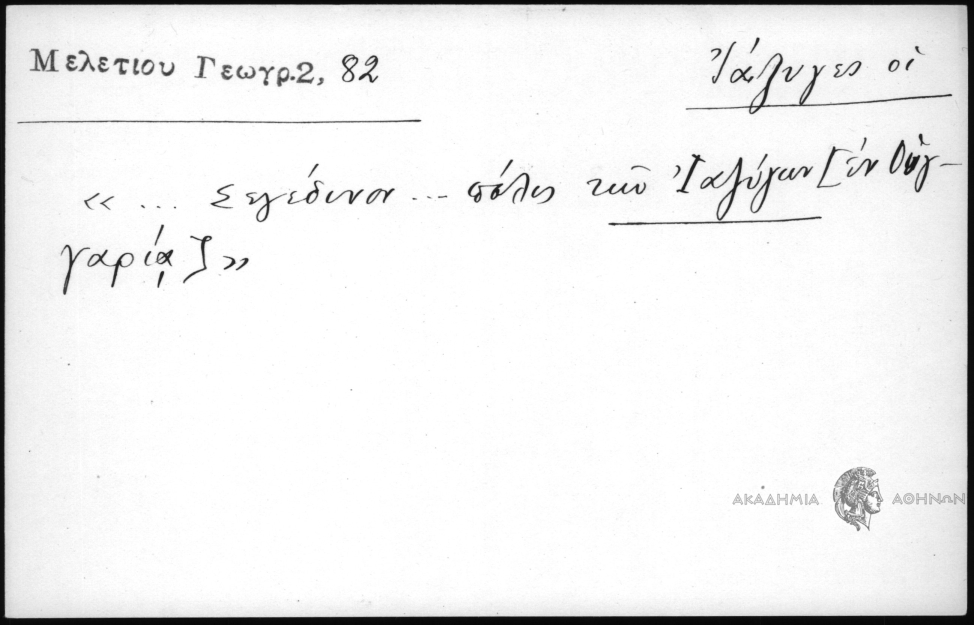 Μελετιου Γεωγρ.2, 82
Ἰάζυγες οἱ
« ... Σεγέδινον ... πόλις τῶν Ἰαζύγων [ἐν Οὑγ-
γαρίᾳ] »
ΑΚΑΔΗΜΙΑ ΑΘΗΝΩΝ